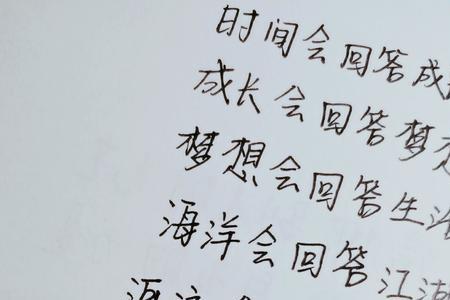 时间会回答成
成长会回答梦
梦想会回答生活
海洋会回答江湖